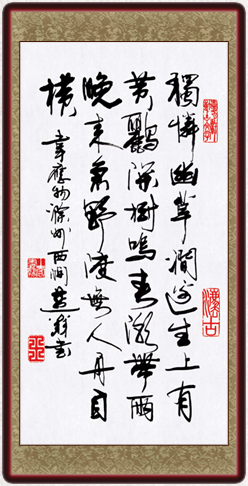 獨憐幽草澗邊生上有
黄鸝深樹鳴春潮帶雨
晚來急野渡無人舟自
橫
韋應物滁州西澗書